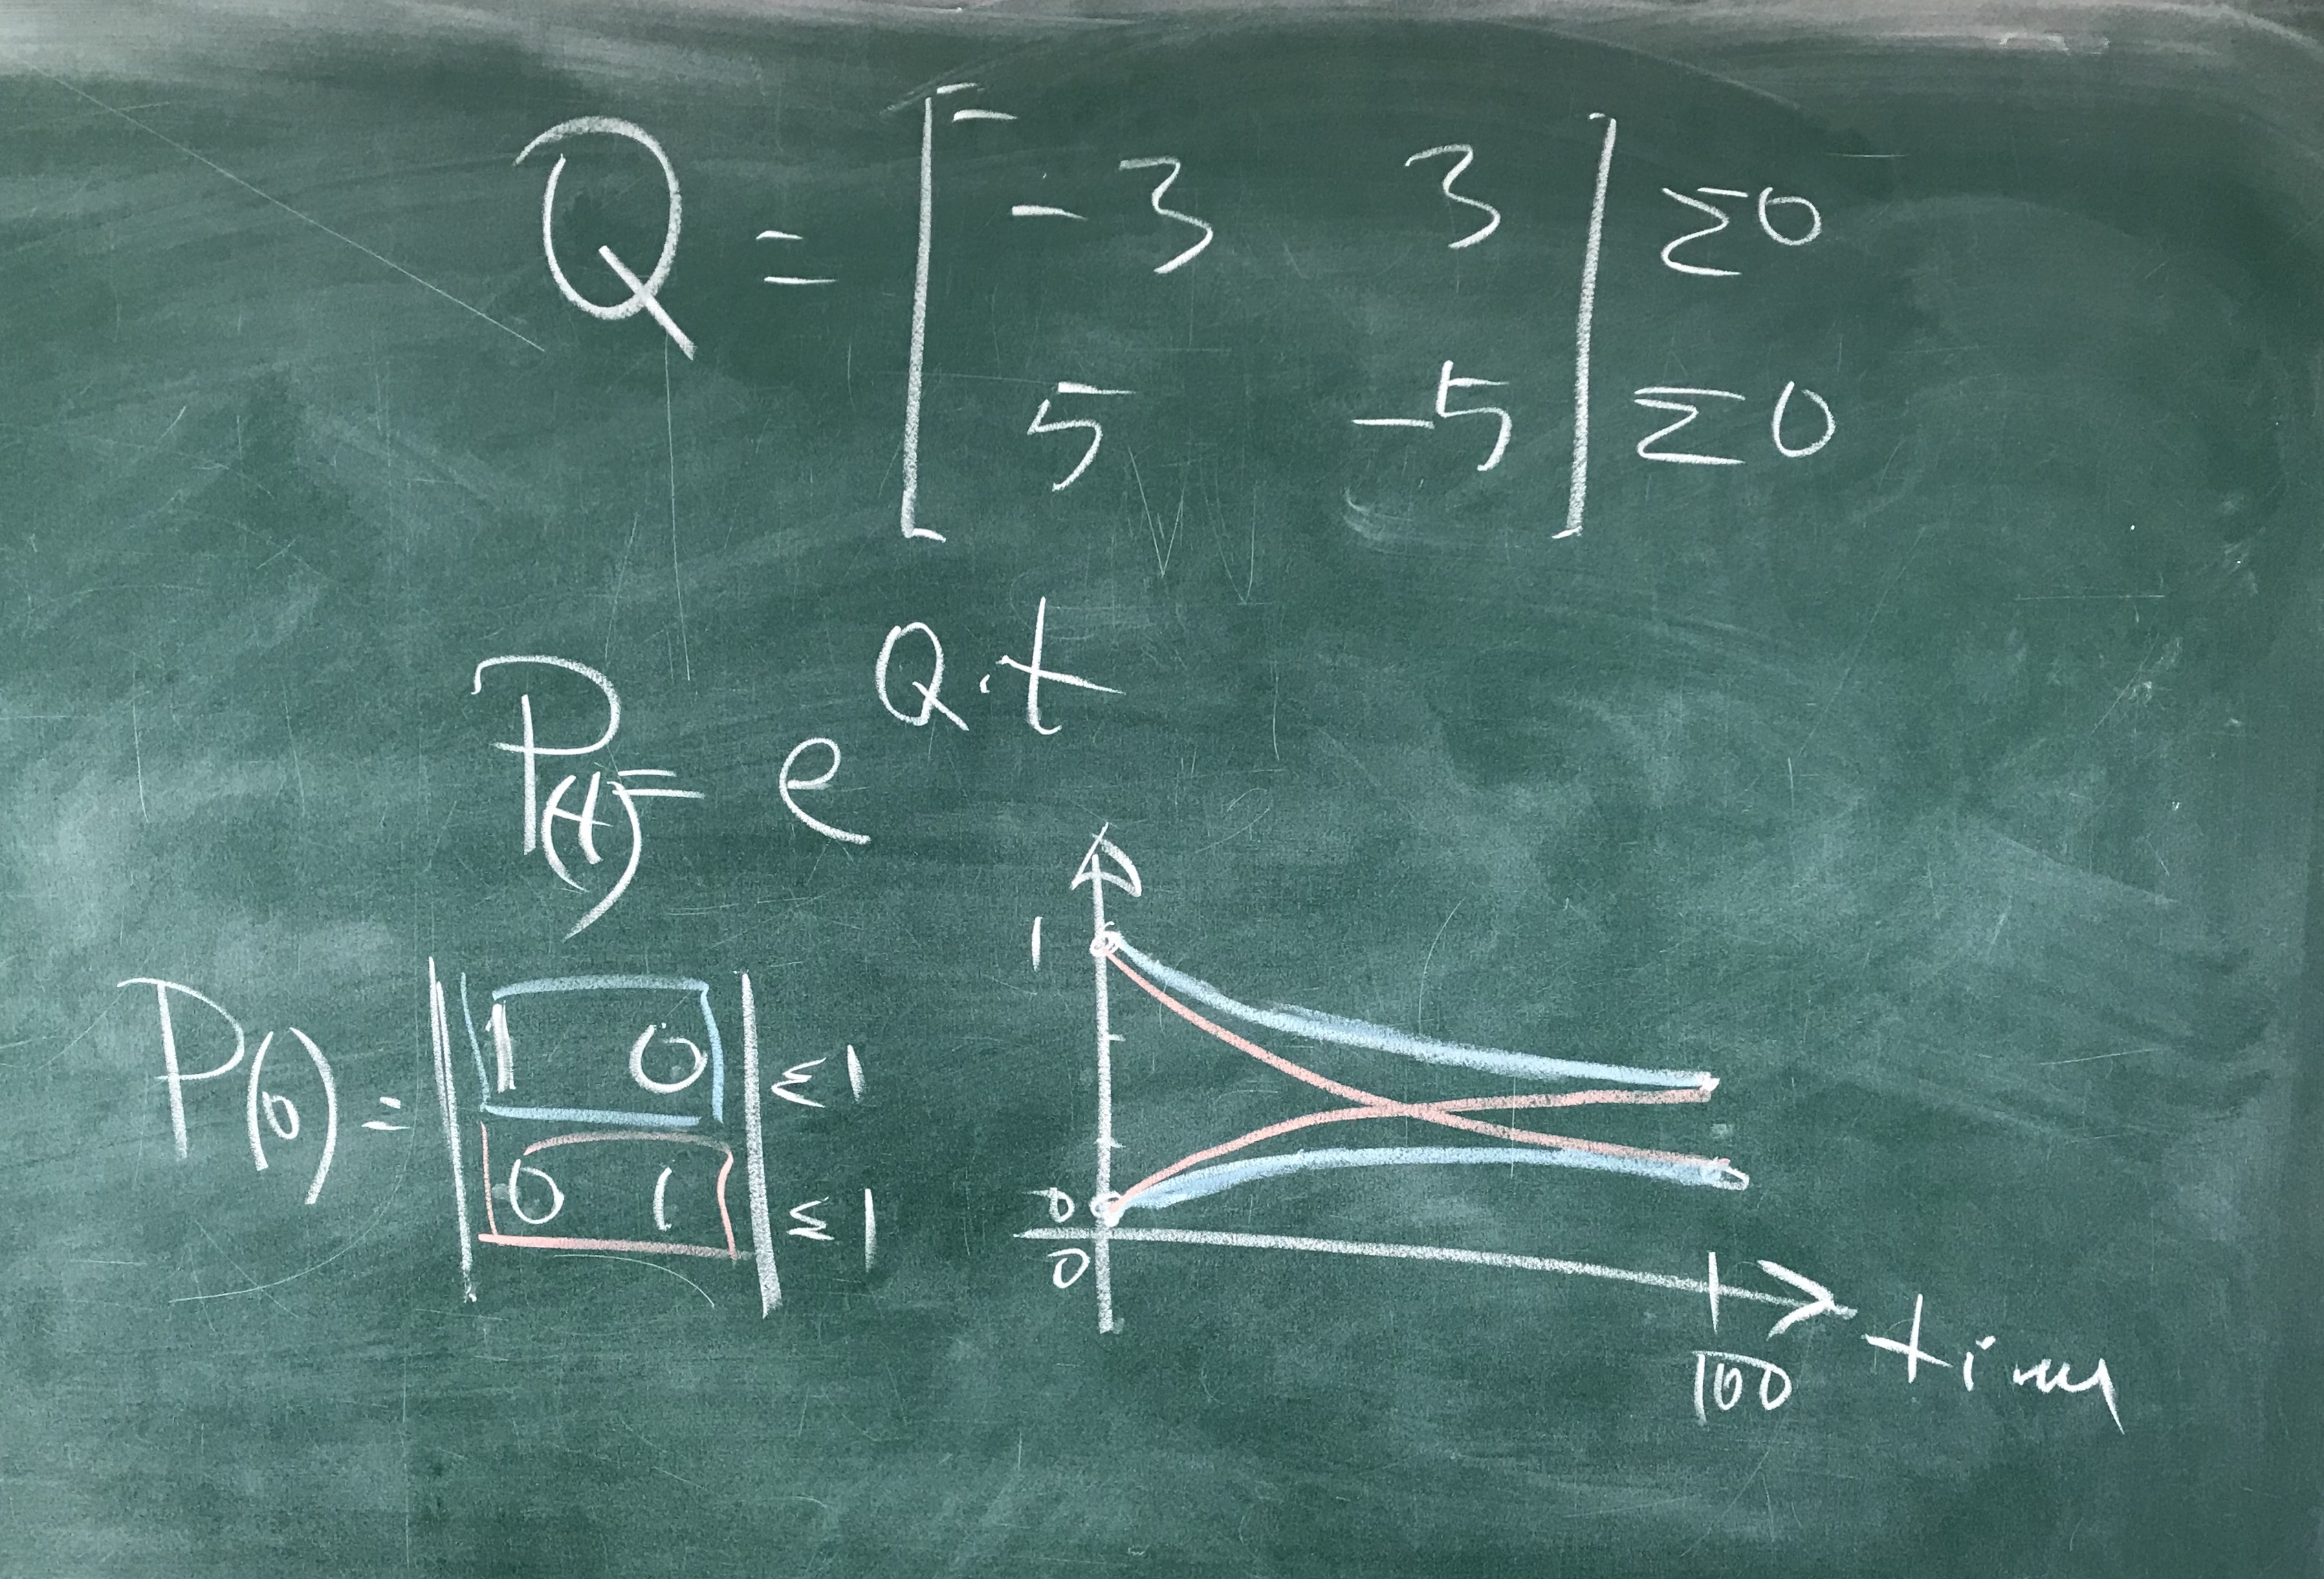 Q = [ -3 3 ] Σ0
5 -5 Σ0
P(t) = e^Q·t
P(0) = | 1 0 | Σ1
0 1 Σ1
1
0
0
100
time